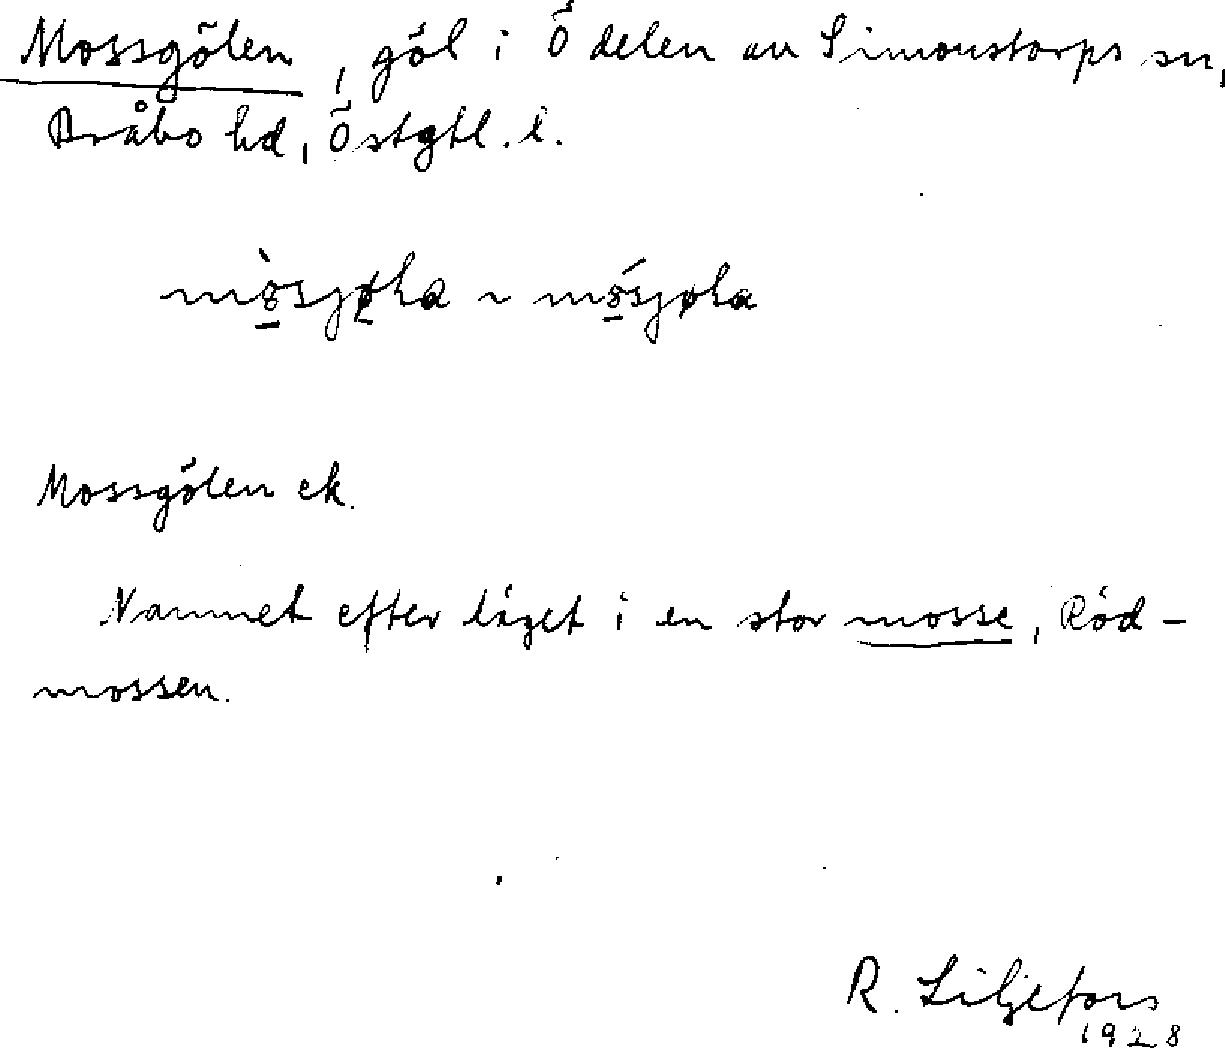 Mossgölen, göl i Ö delen av Simonstorps sn,
Bråbo hd, Östgtl. l.
Mossgölen ek.
Namnet efter läget i en stor mosse, Röd-
mossen.
R. Liljefors
1928